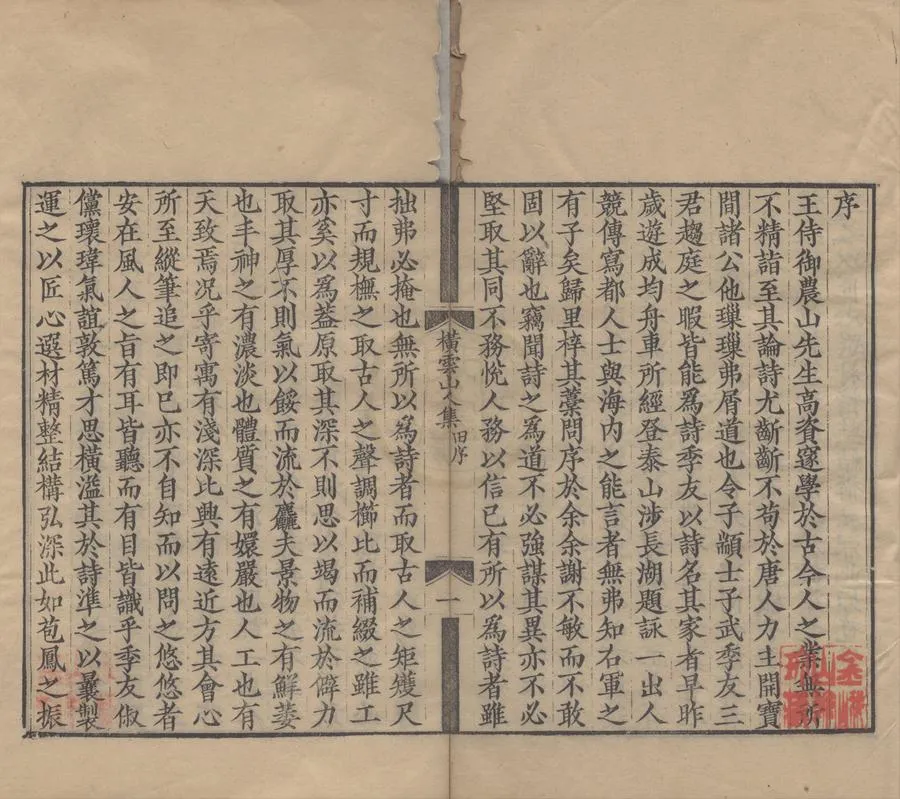 序
王侍御農山先生高資邃學於古今人之業無所
不精詣至其論詩尤齗齗不苟於唐人力主開寶
間諸公他璅璅弗屑道也令子顓士子武季友三
君趨庭之暇皆能爲詩季友以詩名其家者早昨
歲遊成均舟車所經登泰山涉長湖題詠一出人
競傳寫都人士與海内之能言者無弗知右軍之
有子矣歸里梓其藁問序於余余謝不敏而不敢
固以辭也竊聞詩之爲道不必強謀其異亦不必
堅取其同不務悅人務以信已有所以爲詩者雖
橫雲山人集 旧序
一
拙弗必掩也無所以爲詩者而取古人之矩矱尺
寸而規橅之取古人之聲調櫛比而補綴之雖工
亦奚以爲葢原取其深不則思以竭而流於僻力
取其厚不則氣以餒而流於麤夫景物之有鮮萎
也丰神之有濃淡也體質之有嬛嚴也人工也有
天致焉况乎寄寓有淺深比興有遠近方其會心
所至縱筆追之即已亦不自知而以問之悠悠者
安在風人之旨有耳皆聽而有目皆識乎季友俶
儻瓌瑋氣誼敦篤才思橫溢其於詩準之以曩製
運之以匠心選材精整結構弘深此如苞鳳之振